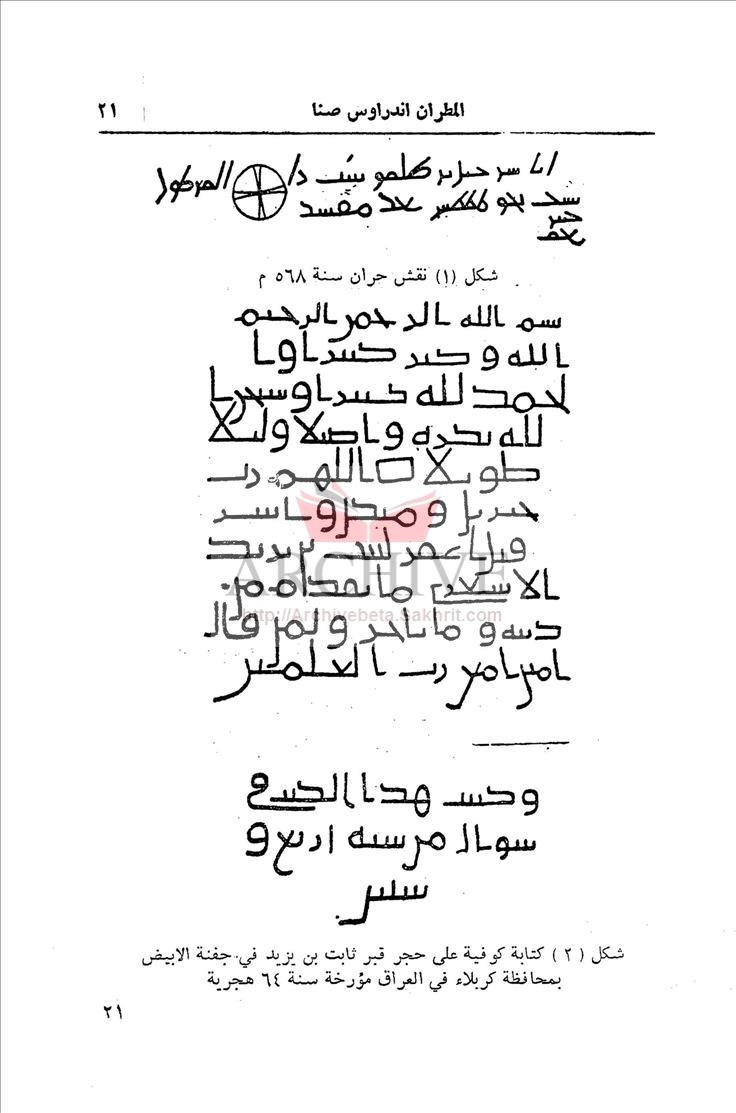 المطران اندراوس صنا
٢١
انا شرحيل بر ظلمو بنيت ذا المرطول
سنت بعد مفسد
خيبر
بعم
شكل (١) نقش حران سنة ٥٦٨ م
بسم الله الرحمن الرحيم
الله وكبر كبيرا وا
لحمد لله كثيرا وسبحن ا
لله بكرة واصيلا وليلا
طويلا اللهم رب
جبريل وميكل واسر
فيل اغفر لثبت بن يزيد
الاشعري ما تقدم من
ذنبه وما تاخر ولمن قال
امين امين رب العلمين
وكتب هذا الكتب في
شوال من سنة اربع و
ستين
شكل (٢) كتابة كوفية على حجر قبر ثابت بن يزيد في جفنة الابيض
بمحافظة كربلاء في العراق مؤرخة سنة ٦٤ هجرية
٢١
ARCHIVE
http://Archivebeta.Sakhrit.com